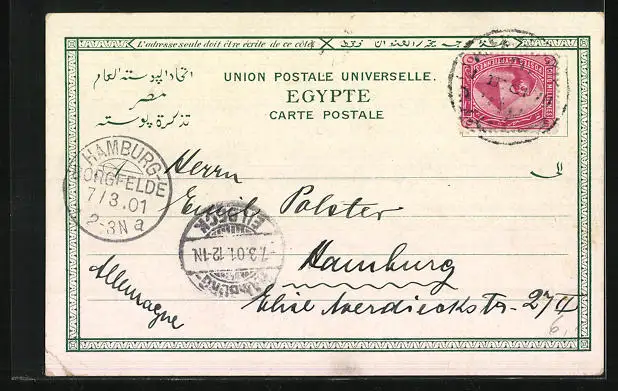 L'adresse seule doit être écrite de ce côté
اتحاد البوسته العام
مصر
تذكرة بوسته
UNION POSTALE UNIVERSELLE.
EGYPTE
CARTE POSTALE
HAMBURG-
BORGFELDE
7/3.01
2-3N a
الى
Herrn
Emil Polster
Hamburg
Elise Averdieckstr. 27 II
Allemagne
EILBECK
7.3.01.12-1N.
HAMBURG